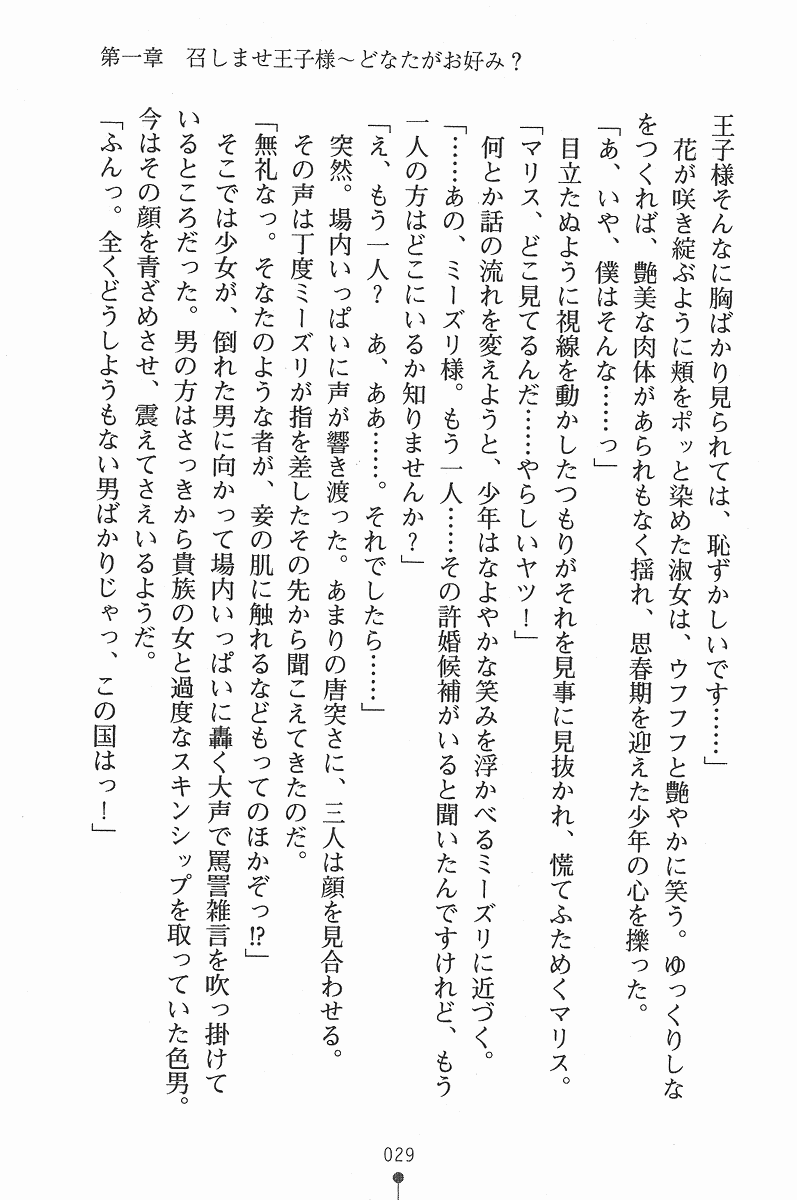 第一章　召しませ王子様～どなたがお好み？
王子様そんなに胸ばかり見られては、恥ずかしいです……」
　花が咲き綻ぶように頬をポッと染めた淑女は、ウフフフと艶やかに笑う。ゆっくりしな
をつくれば、艶美な肉体があられもなく揺れ、思春期を迎えた少年の心を擽った。
「あ、いや、僕はそんな……っ」
　目立たぬように視線を動かしたつもりがそれを見事に見抜かれ、慌てふためくマリス。
「マリス、どこ見てるんだ……やらしいヤツ！」
　何とか話の流れを変えようと、少年はなよやかな笑みを浮かべるミーズリに近づく。
「……あの、ミーズリ様。もう一人……その許婚候補がいると聞いたんですけれど、もう
一人の方はどこにいるか知りませんか？」
「え、もう一人？　あ、ああ……。それでしたら……」
　突然。場内いっぱいに声が響き渡った。あまりの唐突さに、三人は顔を見合わせる。
　その声は丁度ミーズリが指を差したその先から聞こえてきたのだ。
「無礼なっ。そなたのような者が、妾の肌に触れるなどもってのほかぞっ!?」
　そこでは少女が、倒れた男に向かって場内いっぱいに轟く大声で罵詈雑言を吹っ掛けて
いるところだった。男の方はさっきから貴族の女と過度なスキンシップを取っていた色男。
今はその顔を青ざめさせ、震えてさえいるようだ。
「ふんっ。全くどうしようもない男ばかりじゃっ、この国はっ！」
029